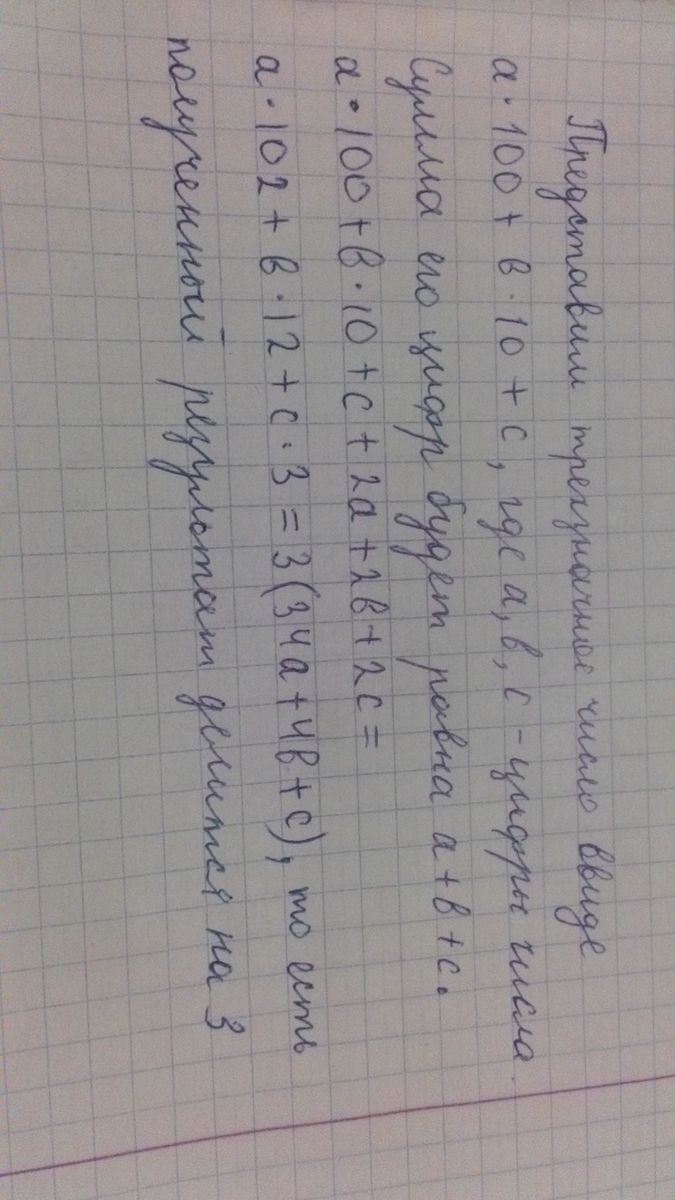 Представим трехзначное число ввиде
а·100 + в·10 + с, где а, в, с - цифры числа.
Сумма его цифр будет равна а + в + с.
а·100 + в·10 + с + 2а + 2в + 2с =
а·102 + в·12 + с·3 = 3(34а + 4в + с), то есть
полученный результат делится на 3